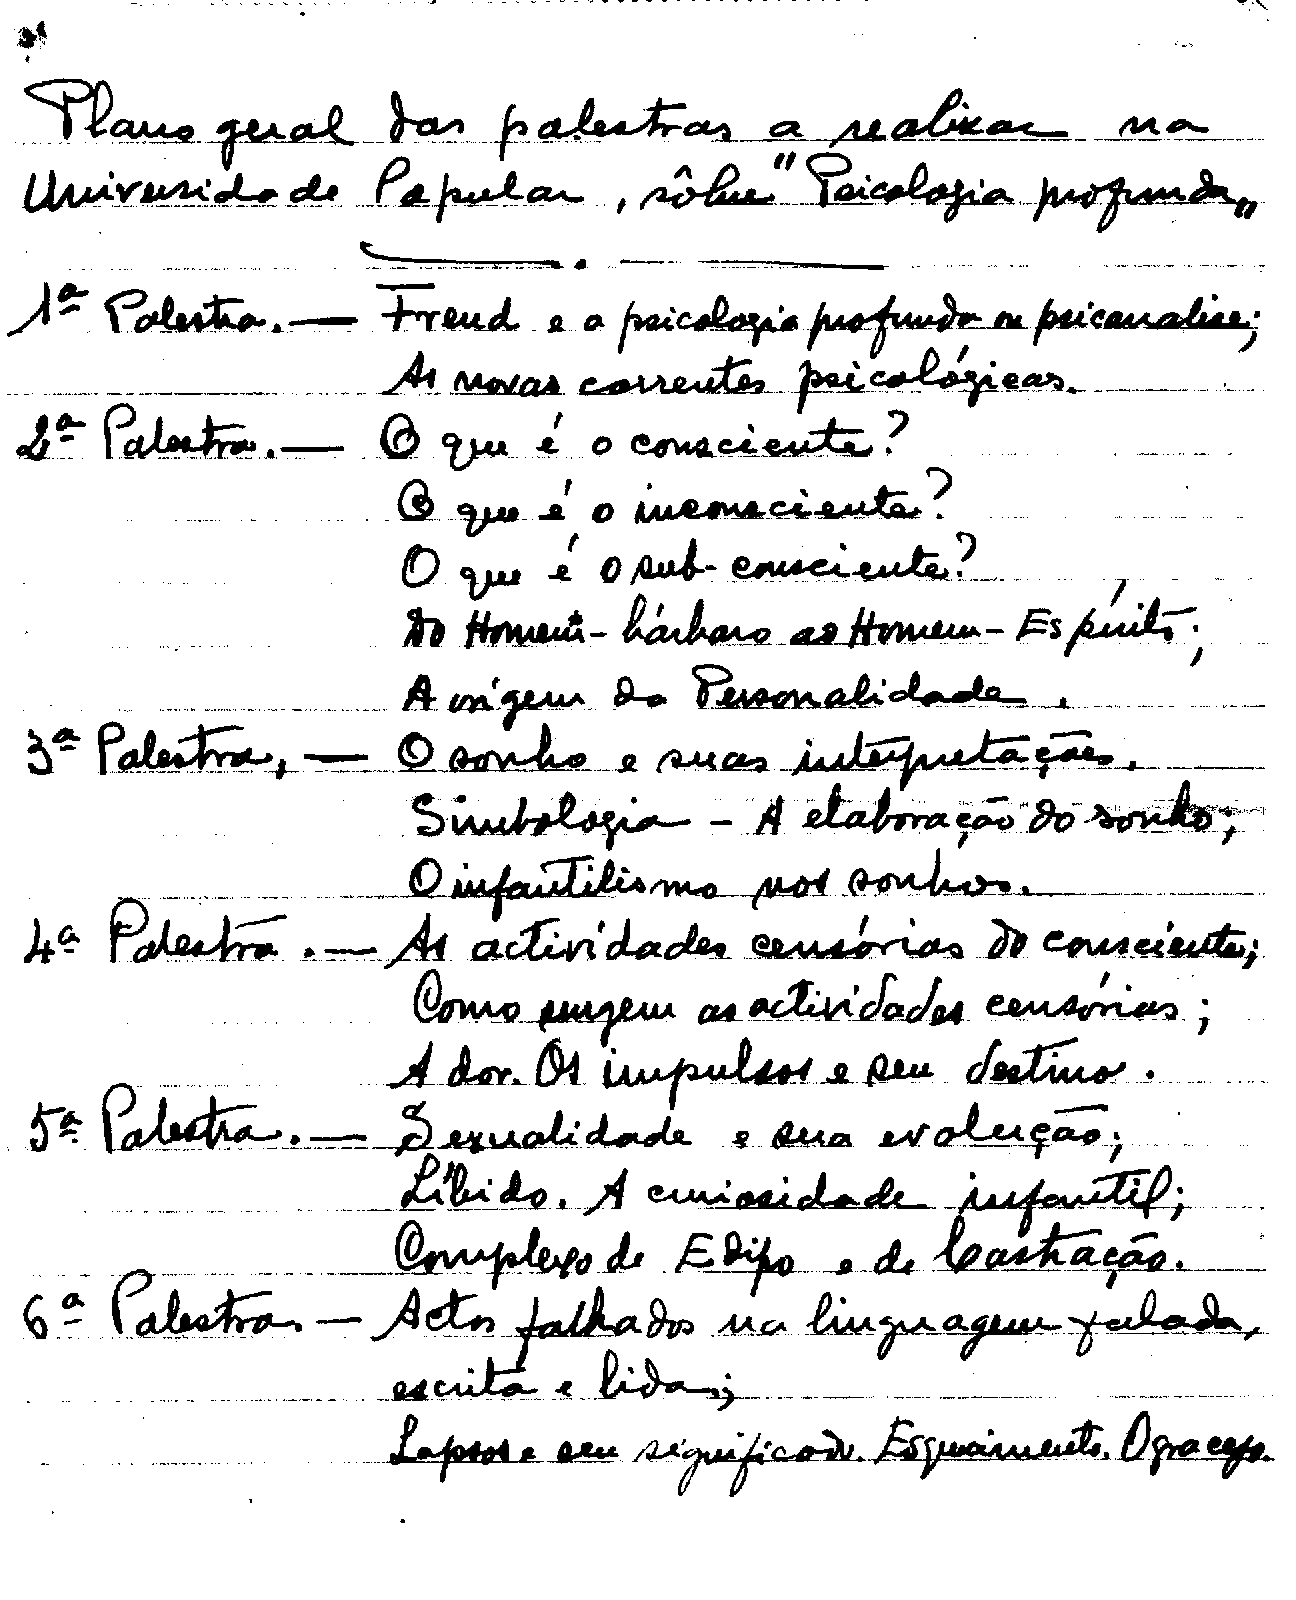 Plano geral das palestras a realizar na
Universidade Popular, sôbre "Psicologia profunda"
1ª Palestra. — Freud e a psicologia profunda ou psicanalise;
As novas correntes psicológicas.
2ª Palestra. — O que é o consciente?
O que é o inconsciente?
O que é o sub-consciente?
Do Homem-bárbaro ao Homem-Espírito;
A origem da Personalidade.
3ª Palestra, — O sonho e suas interpretações.
Simbologia - A elaboração do sonho;
O infantilismo nos sonhos.
4ª Palestra. — As actividades censórias do consciente;
Como surgem as actividades censórias;
A dor. Os impulsos e seu destino.
5ª Palestra. — Sexualidade e sua evolução;
Líbido. A curiosidade infantil;
Complexo de Edipo e de Castração.
6ª Palestra. — Actos falhados na linguagem falada,
escrita e lida;
Lapsos e seu significado. Esquecimento. O gracejo.